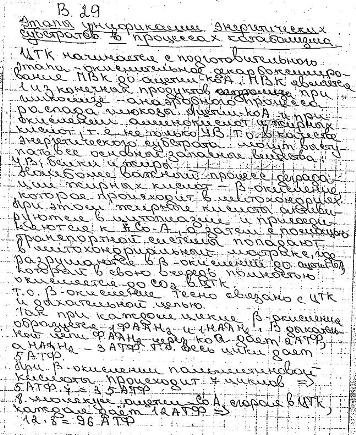 В. 29
Этапы унификации энергетических
субстратов в процессах катаболизма
ЦТК начинается с подготовительного
этапа - окислительное декарбоксилиро-
вание ПВК до ацетил-КоА. ПВК является
1 из конечных продуктов при
гликолизе - анаэробного процесса
распада глюкозы. Ацетил-КоА и при
окислении аминокислот и жирных
кислот, т.е. не только УВ. Т.о. в качестве
энергетического субстрата могут высту-
пать все основные пищевые вещества:
УВ, белки и жиры.
Наиболее важный процесс деграда-
ции жирных кислот - β-окисление,
которое происходит в митохондриях.
При этом жирные кислота активи-
руются в цитоплазме и присоеди-
няются к КоА, а затем с помощью
транспортной системы попадают
в митохондриальный матрикс, где
разрушаются в β-окислении до ацетила,
который в свою очередь полностью
окисляется до CO2 в ЦТК.
Т.о. β-окисление тесно связано с ЦТК
и дыхательной цепью.
Так при каждом цикле β-окисления
образуется 1 ФАДН2 и 1 НАДН2. В дыхатель-
ной цепи ФАДН2 через КоQ даёт 2АТФ,
а НАДН2 - 3АТФ. Т.о. весь цикл даёт
5АТФ.
При β-окислении пальмитиновой
кислоты происходит 7 циклов ⇒
5АТФ·7 = 35АТФ
8 молекул ацетил-КоА, сгорая в ЦТК,
каждая даёт 12АТФ ⇒
12·8 = 96АТФ